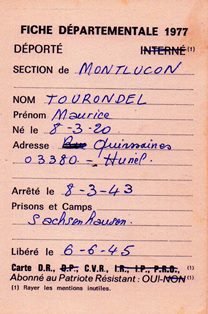 FICHE DÉPARTEMENTALE 1977
DÉPORTÉ INTERNÉ (1)
SECTION de MONTLUCON
NOM TOURONDEL
Prénom Maurice
Né le 8-3-20
Adresse Quirissaines
03380 - Hurel.
Arrêté le 8-3-43
Prisons et Camps
Sachsenhausen.
Libéré le 6-6-45
Carte D.R., D.P., C.V.R., I.R., I.P., P.R.O., (1)
Abonné au Patriote Résistant : OUI-NON (1)
(1) Rayer les mentions inutiles.